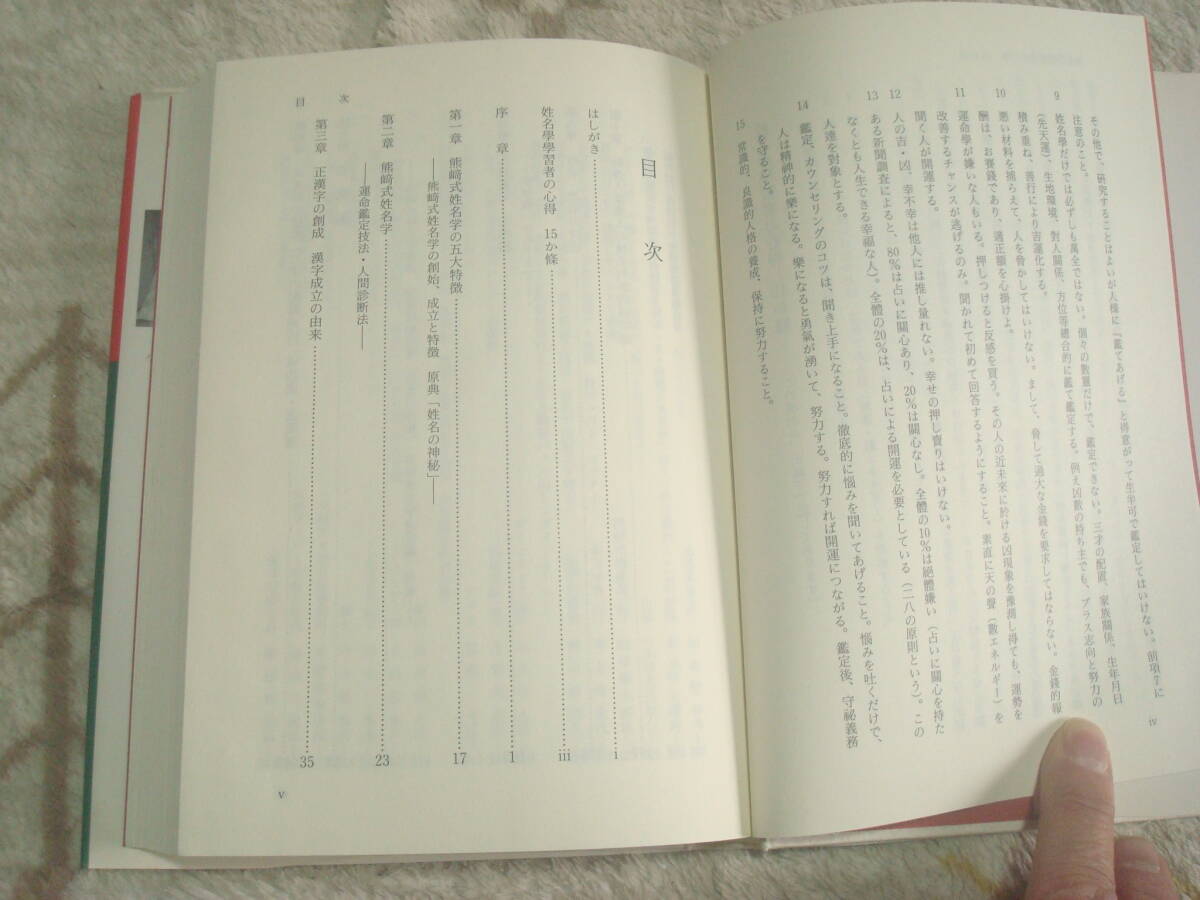 その他で、研究することはよいが人様に『鑑てあげる』と得意がって生半可で鑑定してはいけない。前項7に
注意のこと。
9 姓名學だけでは必ずしも萬全ではない。個々の數靈だけで、鑑定できない。三才の配置、家族關係、生年月日
(先天運)、生地環境、對人關係、方位等總合的に鑑て鑑定する。例え凶數の持ち主でも、プラス志向と努力の
積み重ね、善行により吉運化する。
10 悪い材料を捕らえて、人を脅かしてはいけない。まして、脅して過大な金錢を要求してはならない。金錢的報
酬は、お賽錢であり、適正額を心掛けよ。
11 運命學が嫌いな人もいる。押しつけると反感を買う。その人の近未來に於ける凶現象を豫測し得ても、運勢を
改善するチャンスが逃げるのみ。聞かれて初めて回答するようにすること。素直に天の聲(數エネルギー)を
聞く人が開運する。
12 人の吉・凶、幸不幸は他人には推し量れない。幸せの押し賣りはいけない。
13 ある新聞調査によると、80%は占いに關心あり、20%は關心なし。全體の10%は絕體嫌い(占いに關心を持た
なくとも人生できる幸福な人)。全體の20%は、占いによる開運を必要としている(二八の原則という)。この
人達を對象とする。
14 鑑定、カウンセリングのコツは、聞き上手になること。徹底的に悩みを聞いてあげること。悩みを吐くだけで、
人は精神的に樂になる。樂になると勇氣が湧いて、努力する。努力すれば開運につながる。鑑定後、守祕義務
を守ること。
15 常識的、良識的人格の養成、保持に努力すること。
iv
目 次
はしがき……i
姓名學學習者の心得 15か條……iii
序 章……1
第一章 熊﨑式姓名学の五大特徴……17
――熊﨑式姓名学の創始、成立と特徴 原典「姓名の神秘」――
第二章 熊﨑式姓名学……23
――運命鑑定技法・人間診断法――
第三章 正漢字の創成 漢字成立の由来……35
目 次
v